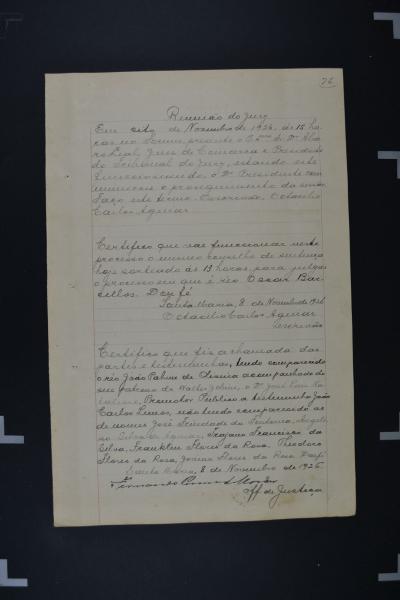 76
Reunião do Jury
Em oito de Novembro de 1926, às 15 ho-
ras no Forum, presente o Exmo Sr. Dr. Alva-
ro Leal, Juiz de Comarca e Presidente
do Tribunal do Jury, estando este
funccionando, o Dr. Presidente com-
municou o proseguimento da sessão.
Faço este termo. Escrevendo, Octacilio
Carlos Aguiar
Certifico que vae funccionar neste
processo o mesmo conselho de sentença
hoje sorteado ás 13 horas para julgar
o processo em que é réo Oscar Bar-
cellos. Dou fé
Santa Maria, 8 de Novembro de 1926
Octacilio Carlos Aguiar
Escrivão
Certifico que fiz a chamada das
partes e testemunhas, tendo comparecido
o réo João de acompanhado do
seu patrono Dr. Walter Jobim, o Dr. José Luiz
Promotor Publico a testemunha João
Carlos não tendo comparecido as
de nomes José Trindade da
Trajano Francisco da
Silva, Franklin Flores da Rosa, Theodoro
Flores da Rosa, Flores da Rosa. Dou fé
Santa Maria, 8 de Novembro de 1926
Fernando
Off de Justiça